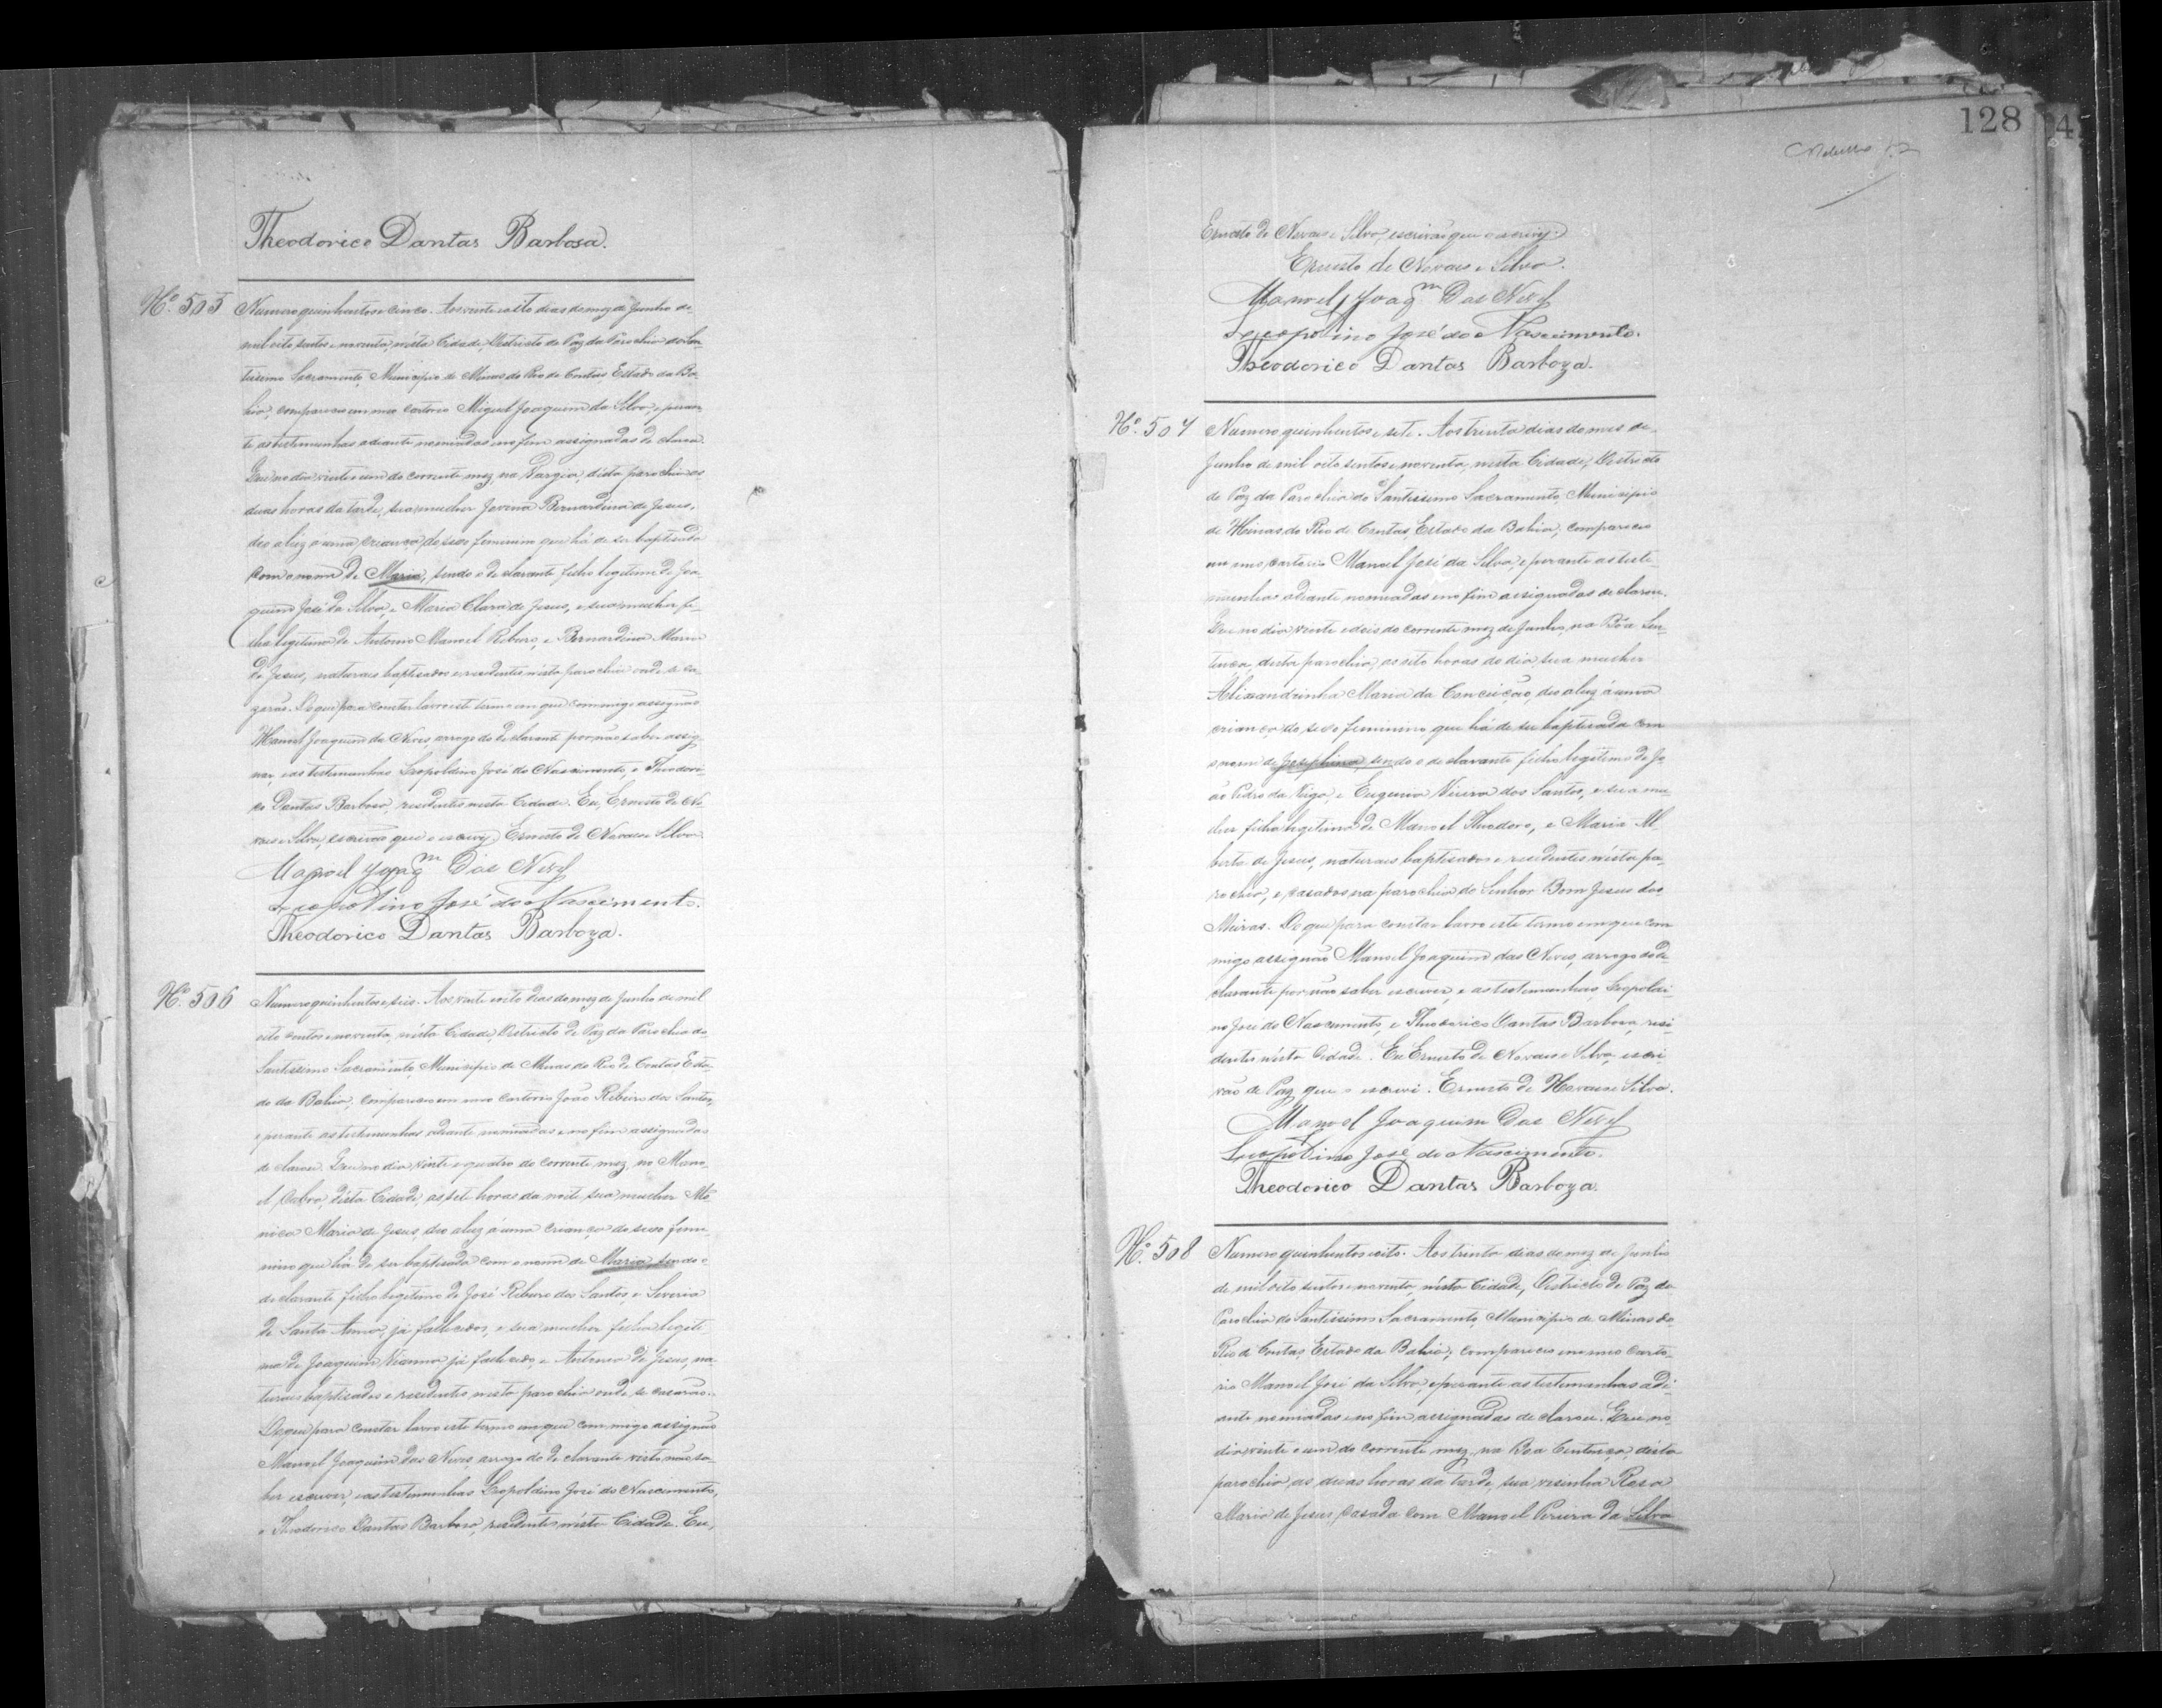 Theodorico Dantas Barbosa.
Nº 505
Numero quinhentos e cinco. Aos vinte e oito dias do mez de Junho de
mil oito centos e noventa, n'esta Cidade, Districto de Paz da Parochia do San-
tissimo Sacramento, Municipio de Minas do Rio de Contas Estado da Ba-
hia, compareceo em meo Cartorio Miguel Joaquim da Silva, e peran-
te as testemunhas adiante nomiadas e no fim assignadas de clarou.
Que no dia vinte e um do corrente mez, na Vargia, d'esta parochia as
duas horas da tarde, sua mulher Jovena Bernardina de Jesus,
deo a luz a uma criança do sexo feminino que há de ser baptisada
com o nome de Maria, sendo o declarante filho legitimo de Joa-
quim José da Silva e Maria Clara de Jesus, e sua mulher fi-
lha legitima de Antonio Manoel Ribeiro, e Bernardina Maria
de Jesus, naturais baptisados e residentes n'esta parochia onde se ca-
zarão. De que para constar lavro este termo em que commigo assignão
Manoel Joaquim da Neves, arrogo do declarante por não saber assig-
nar, e as testemunhas Leopoldino José do Nascimento, e Theodori-
co Dantas Barbosa, residentes nesta Cidade. Eu, Ernesto de No-
vais e Silva, escrivão que o escrevy. Ernesto de Novais e Silva.
Manoel Joaqm Das Neves
Leopoldino José do Nascimento.
Theodorico Dantas Barboza.
Nº 506
Numero quinhentos e seis. Aos vinte e oito dias do mez de Junho de mil
oito centos e noventa, n'esta Cidade, Districto de Paz da Parochia do
Santissimo Sacramento, Municipio de Minas do Rio de Contas Esta-
do da Bahia, compareceo em meo Cartorio João Ribeiro dos Santos,
e perante as testemunhas adiante nomiadas e no fim assignadas
de clarou. Que no dia vinte e quatro do corrente mez, no Mano-
el Cabra, d'esta Cidade, as sete horas da noite sua mulher Mo-
nica Maria de Jesus, deo a luz á uma criança do sexo femi-
nino que há de ser baptisada com o nome de Maria, sendo o
declarante filho legitimo de José Ribeiro dos Santos, e Severia
de Santa Anna, já fallecidos, e sua mulher filha legiti-
ma de Joaquim Vianna já fallecido e Antonia de Jesus, na-
turais baptisados e residentes nesta parochia onde se casarão.
De que para constar lavro este termo em que commigo assignão
Manoel Joaquim das Neves arrogo do declarante visto não sa-
ber escrever, e as testemunhas Leopoldino José do Nascimento,
e Theodorico Dantas Barbosa, residentes n'esta Cidade. Eu,
128
4
Ernesto de Novais e Silva, escrivão que o escrevy.
Ernesto de Novais e Silva.
Manoel Joaqm Das Neves
Leopoldino José do Nascimento.
Theodorico Dantas Barboza.
Nº 507
Numero quinhentos e sete. Aos trinta dias do mes de
Junho de mil oito sentos e noventa, nesta Cidade, Districto
de Paz da Parochia do Santissimo Sacramento, Municipio
de Minas do Rio de Contas, Estado da Bahia, compareceo
em meo cartorio Manoel José da Silva, e perante as teste-
munhas adiante nomiadas e no fim assignadas declarou.
Que no dia vinte e dois do corrente mez de Junho, na Bôa Sen-
tença, desta parochia, as oito horas do dia, sua mulher
Alixandrinha Maria da Conceição, deo a luz á uma
criança do sexo feminino que há de ser baptisada com
o nome de Josephina, sendo o declarante filho legitimo de Jo-
ão Pedro da Veiga, e Eugenia Vieira dos Santos, e sua mu-
lher filha legitima de Manoel Theodoro, e Maria Al-
berta de Jesus, naturais baptisados e residentes n'esta pa-
rochia, e casados na parochia do Senhor Bom Jesus dos
Meiras. De que para constar lavro este termo em que com-
migo assignão Manoel Joaquim das Neves, arrogo do de-
clarante por não saber escrever, e as testemunhas, Leopoldi-
no José do Nascimento, e Theodorico Dantas Barbosa, resi-
dentes n'esta Cidade. Eu Ernesto de Novais e Silva, escri-
vão de Paz que o escrevi. Ernesto de Novais e Silva.
Manoel Joaquim Das Neves
Leopoldino José do Nascimento.
Theodorico Dantas Barboza.
Nº 508
Numero quinhentos e oito. Aos trinta dias do mez de Junho
de mil oito sentos e noventa, n'esta Cidade, Districto de Paz da
Parochia do Santissimo Sacramento, Municipio de Minas do
Rio de Contas, Estado da Bahia, compareceo em meo Carto-
rio Manoel José da Silva, e perante as testemunhas adi-
ante nomiadas e no fim assignadas declarou. Que no
dia vinte e um do corrente mez, na Boa Centença, desta
parochia as duas horas da tarde, sua vesinha Rosa
Maria de Jesus, casada com Manoel Pereira da Silva